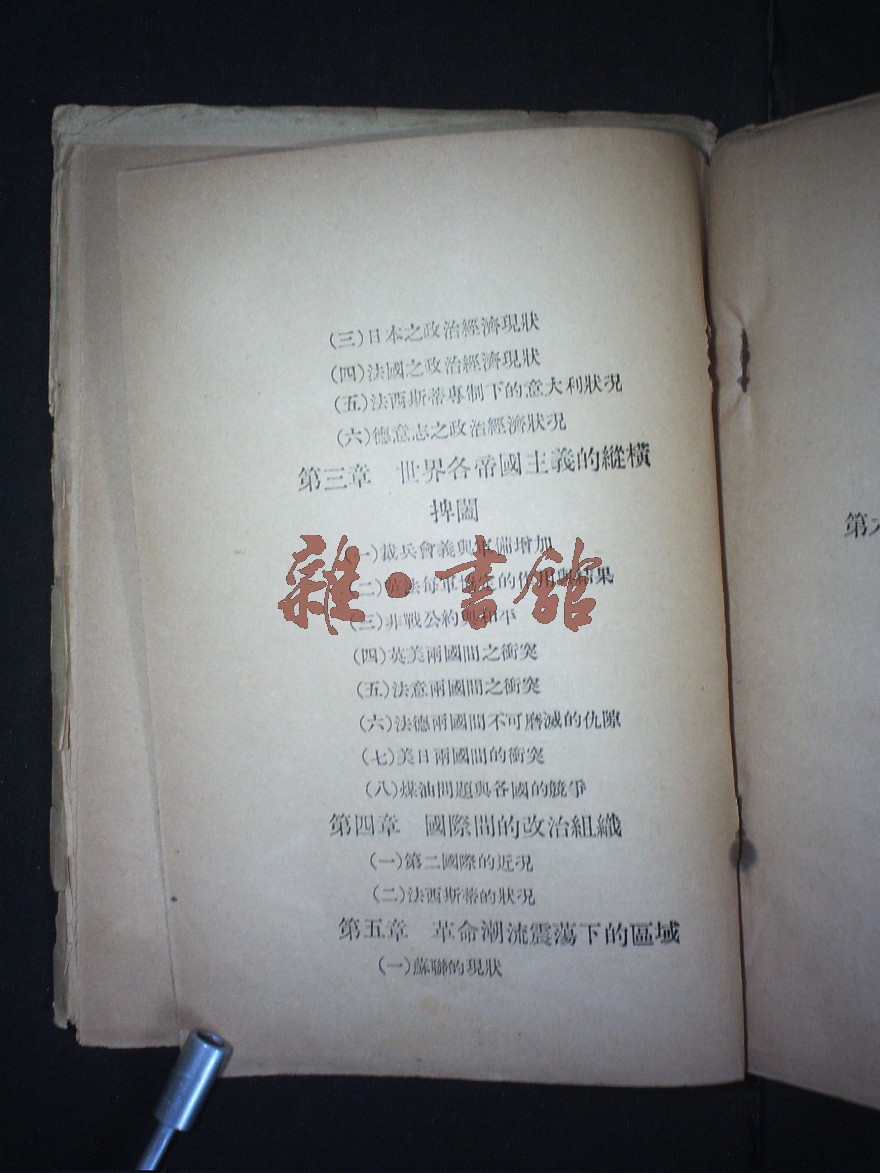 (三)日本之政治經濟現狀
(四)法國之政治經濟現狀
(五)法西斯蒂專制下的意大利狀況
(六)德意志之政治經濟狀況
第三章 世界各帝國主義的縱橫
捭闔
(一)裁兵會義與軍備增加
(二)英法海軍協定的作用與結果
(三)非戰公約與和平
雜·書館
(四)英美兩國間之衝突
(五)法意兩國間之衝突
(六)法德兩國間不可磨滅的仇隙
(七)美日兩國間的衝突
(八)煤油問題與各國的競爭
第四章 國際間的政治組織
(一)第二國際的近況
(二)法西斯蒂的狀況
第五章 革命潮流震蕩下的區域
(一)蘇聯的現狀
第